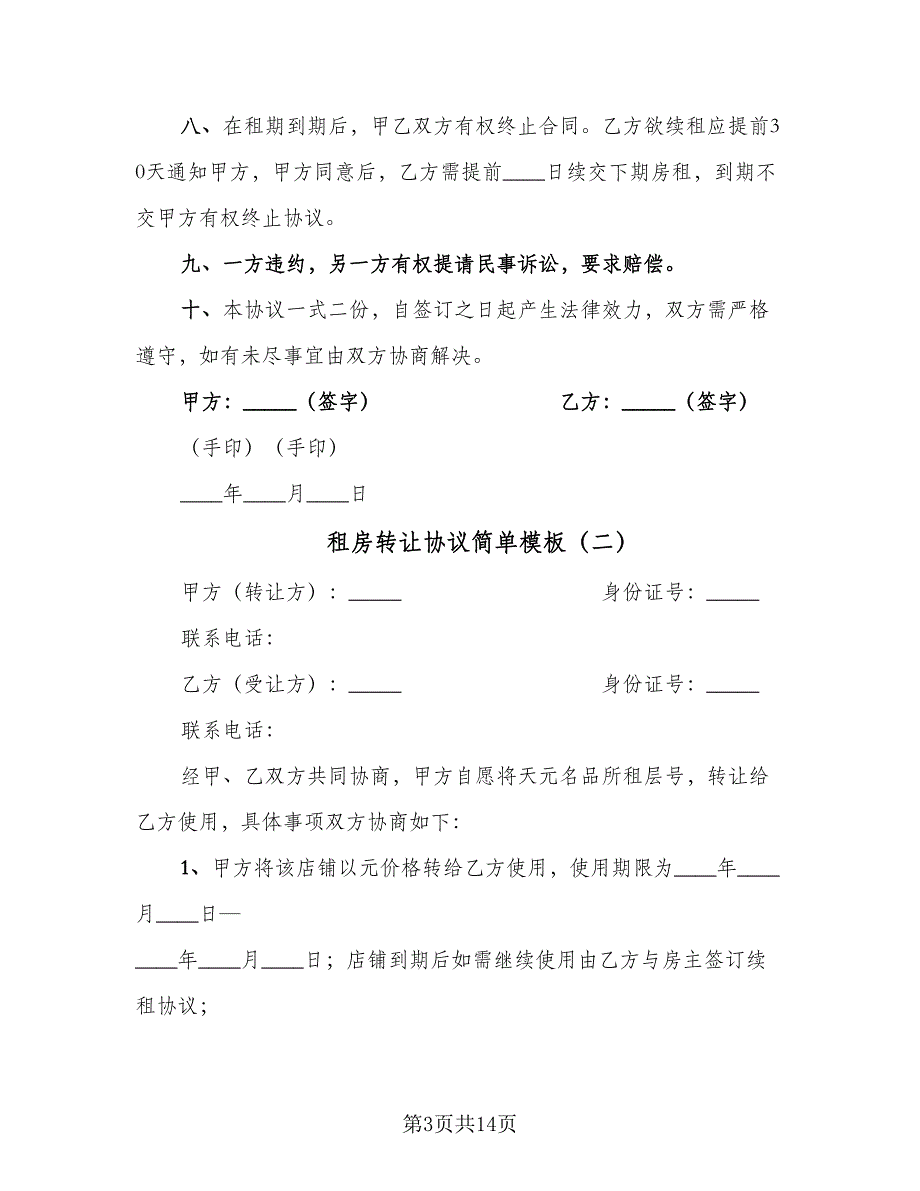 八、在租期到期后，甲乙双方有权终止合同。乙方欲续租应提前3
0天通知甲方，甲方同意后，乙方需提前____日续交下期房租，到期不
交甲方有权终止协议。
九、一方违约，另一方有权提请民事诉讼，要求赔偿。
十、本协议一式二份，自签订之日起产生法律效力，双方需严格
遵守，如有未尽事宜由双方协商解决。
甲方：_____（签字） 乙方：_____（签字）
（手印）（手印）
____年____月____日
租房转让协议简单模板（二）
甲方（转让方）：_____ 身份证号：_____
联系电话：
乙方（受让方）：_____ 身份证号：_____
联系电话：
经甲、乙双方共同协商，甲方自愿将天元名品所租层号，转让给
乙方使用，具体事项双方协商如下：
1、甲方将该店铺以元价格转给乙方使用，使用期限为____年____
月____日—
____年____月____日；店铺到期后如需继续使用由乙方与房主签订续
租协议；
第3页共14页